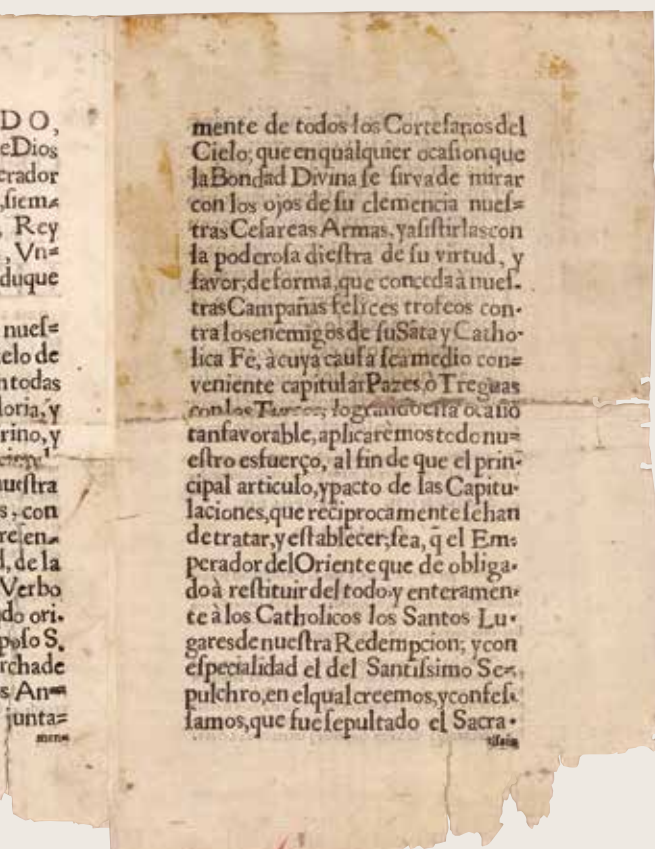 DO,
eDios
erador
,ſiem⸗
, Rey
, Vn⸗
duque
nueſ⸗
elo de
ntodas
loria, y
rino, y
nueſtra
s, con
reſen⸗
l, de la
Verbo
do ori-
poſo S.
rchade
s An⸗
junta⸗
men⸗
mente de todos los Corteſanos del
Cielo; que en qualquier ocaſion que
la Bondad Divina ſe ſirva de mirar
con los ojos de ſu clemencia nueſ⸗
tras Ceſareas Armas, y aſiſtirlas con
la poderoſa dieſtra de ſu virtud, y
favor; de forma, que conceda à nueſ-
tras Campañas felices trofeos con-
tra los enemigos de ſu Sãta y Catho-
lica Fè, à cuya cauſa ſea medio con⸗
veniente capitular Pazes, ò Treguas
con los Turcos; logrando eſta ocaſiõ
tan favorable, aplicarèmos todo nu⸗
eſtro esfuerço, al fin de que el prin-
cipal articulo, y pacto de las Capitu-
laciones, que reciprocamente ſe han
de tratar, y eſtablecer; ſea, q̃ el Em-
perador del Oriente quede obliga-
do à reſtituir del todo, y enteramen-
te à los Catholicos los Santos Lu-
gares de nueſtra Redempcion; y con
eſpecialidad el del Santiſsimo Se⸗
pulchro, en el qual creemos, y confeſ-
ſamos, que fue ſepultado el Sacra-
tiſsi⸗